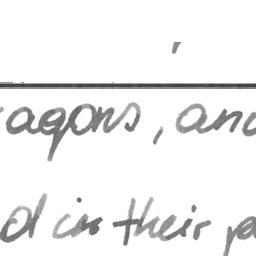 agons, and
d in their